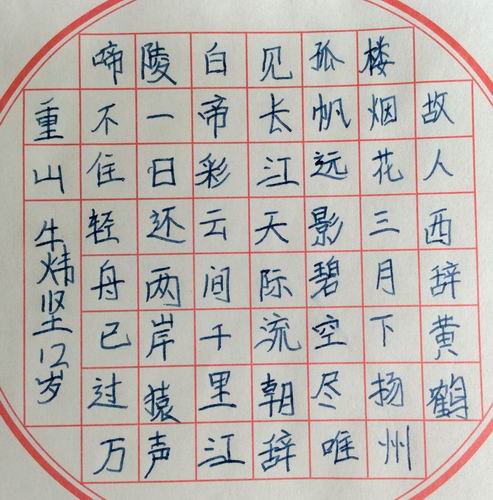 故人西辞黄鹤
楼烟花三月下扬州
孤帆远影碧空尽唯
见长江天际流朝辞
白帝彩云间千里江
陵一日还两岸猿声
啼不住轻舟已过万
重山 牛炜坚12岁